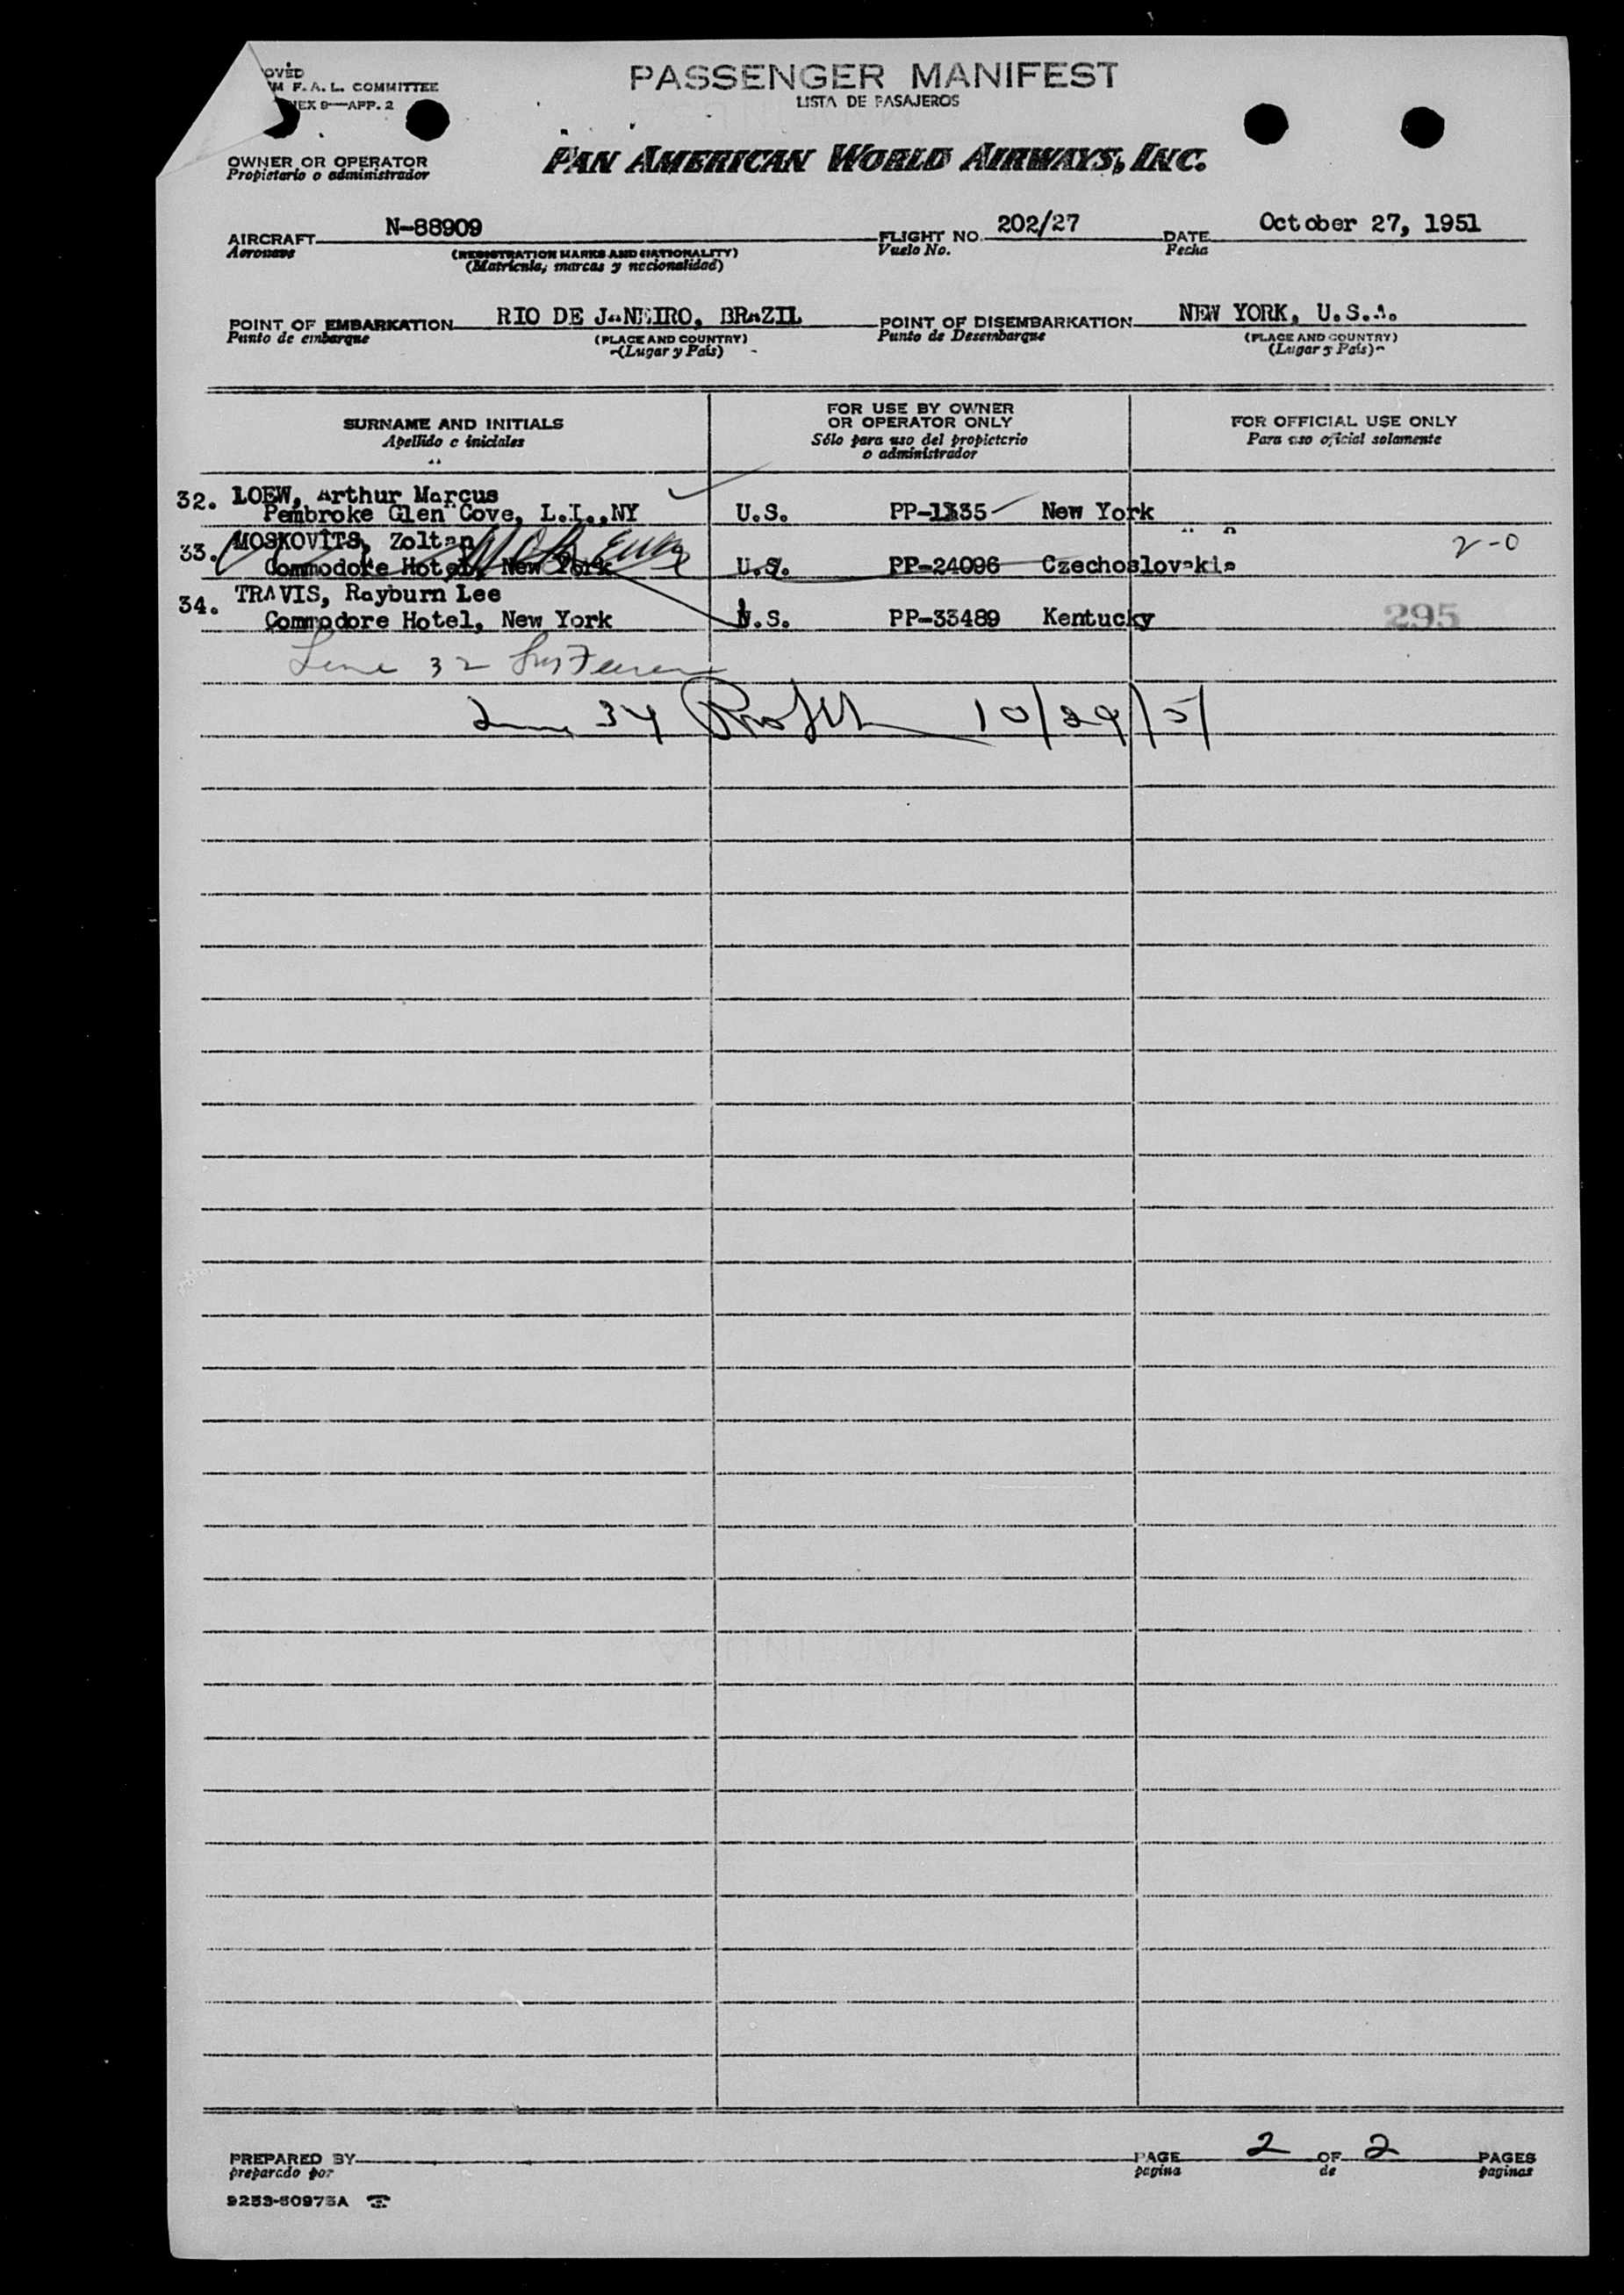 OVED
M F. A. L. COMMITTEE
NEX 9—APP. 2
PASSENGER MANIFEST
LISTA DE PASAJEROS
OWNER OR OPERATOR
Propietario o administrador
PAN AMERICAN WORLD AIRWAYS, INC.
AIRCRAFT N-88909 FLIGHT NO. 202/27 DATE October 27, 1951
Aeronave (REGISTRATION MARKS AND NATIONALITY) Vuelo No. Fecha
(Matrícula, marcas y nacionalidad)
POINT OF EMBARKATION RIO DE JANEIRO, BRAZIL POINT OF DISEMBARKATION NEW YORK, U.S.A.
Punto de embarque (PLACE AND COUNTRY) Punto de Desembarque (PLACE AND COUNTRY)
(Lugar y País) (Lugar y País)
SURNAME AND INITIALS
Apellido e iniciales
FOR USE BY OWNER
OR OPERATOR ONLY
Sólo para uso del propietario
o administrador
FOR OFFICIAL USE ONLY
Para uso oficial solamente
32. LOEW, Arthur Marcus
Pembroke Glen Cove, L.I.,NY U.S. PP-1335 New York
33. MOSKOVITS, Zoltan
Commodore Hotel, New York U.S. PP-24096 Czechoslovakia 2-0
34. TRAVIS, Rayburn Lee
Commodore Hotel, New York U.S. PP-33489 Kentucky 295
Line 32
Line 34 10/29/51
PREPARED BY PAGE 2 OF 2 PAGES
preparado por pagina de paginas
9253-50975A